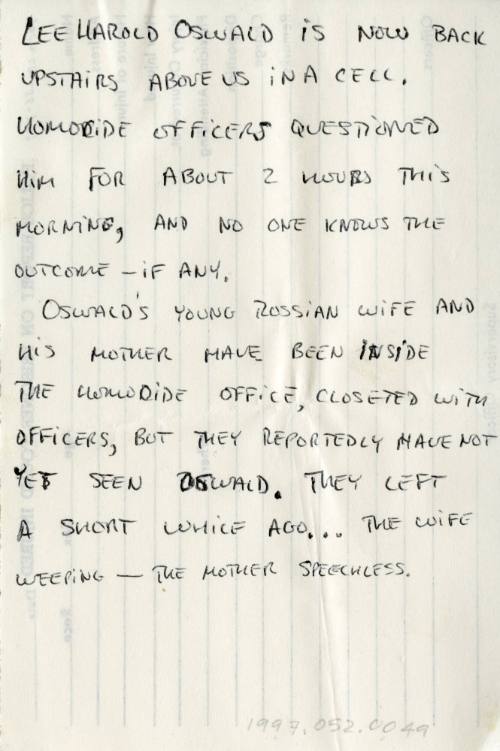 LEE HAROLD OSWALD IS NOW BACK
UPSTAIRS ABOVE US IN A CELL.
HOMOCIDE OFFICERS QUESTIONED
HIM FOR ABOUT 2 HOURS THIS
MORNING, AND NO ONE KNOWS THE
OUTCOME — IF ANY.
OSWALD'S YOUNG RUSSIAN WIFE AND
HIS MOTHER HAVE BEEN INSIDE
THE HOMOCIDE OFFICE, CLOSETED WITH
OFFICERS, BUT THEY REPORTEDLY HAVE NOT
YET SEEN OSWALD. THEY LEFT
A SHORT WHILE AGO... THE WIFE
WEEPING — THE MOTHER SPEECHLESS.
1997.052.0049